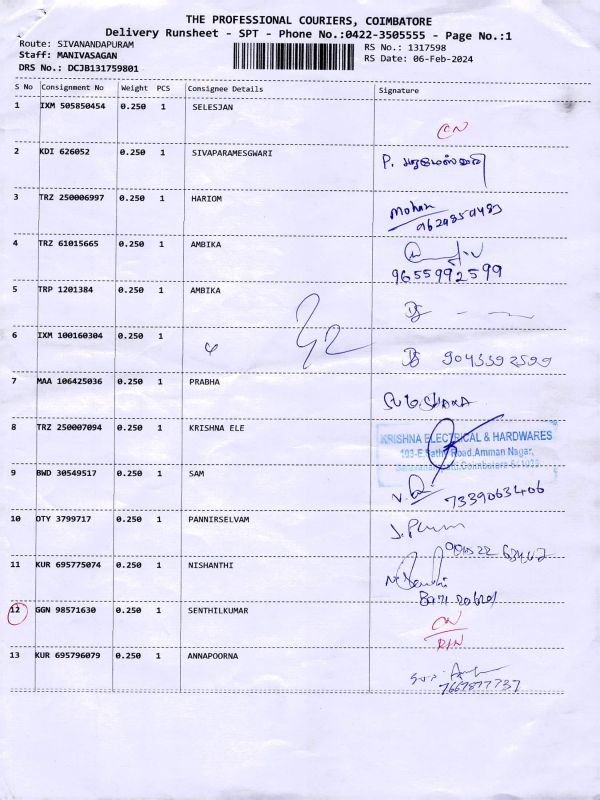 THE PROFESSIONAL COURIERS, COIMBATORE
Delivery Runsheet - SPT - Phone No.:0422-3505555 - Page No.:1
Route: SIVANANDAPURAM
RS No.: 1317598
Staff: MANIVASAGAN
RS Date: 06-Feb-2024
DRS No.: DCJB131759801
S No Consignment No Weight PCS Consignee Details Signature
1 IXM 505850454 0.250 1 SELESJAN
CN
2 KDI 626052 0.250 1 SIVAPARAMESGWARI
P.
3 TRZ 250006997 0.250 1 HARIOM
Mohan
4 TRZ 61015665 0.250 1 AMBIKA
9655992599
5 TRP 1201384 0.250 1 AMBIKA
6 IXM 100160304 0.250 1
7 MAA 106425036 0.250 1 PRABHA
8 TRZ 250007094 0.250 1 KRISHNA ELE
KRISHNA ELECTRICAL & HARDWARES
103-E Sathy Road, Amman Nagar,
9 BWD 30549517 0.250 1 SAM
7339063406
10 OTY 3799717 0.250 1 PANNIRSELVAM
11 KUR 695775074 0.250 1 NISHANTHI
12 GGN 98571630 0.250 1 SENTHILKUMAR
CN
13 KUR 695796079 0.250 1 ANNAPOORNA
7667877737